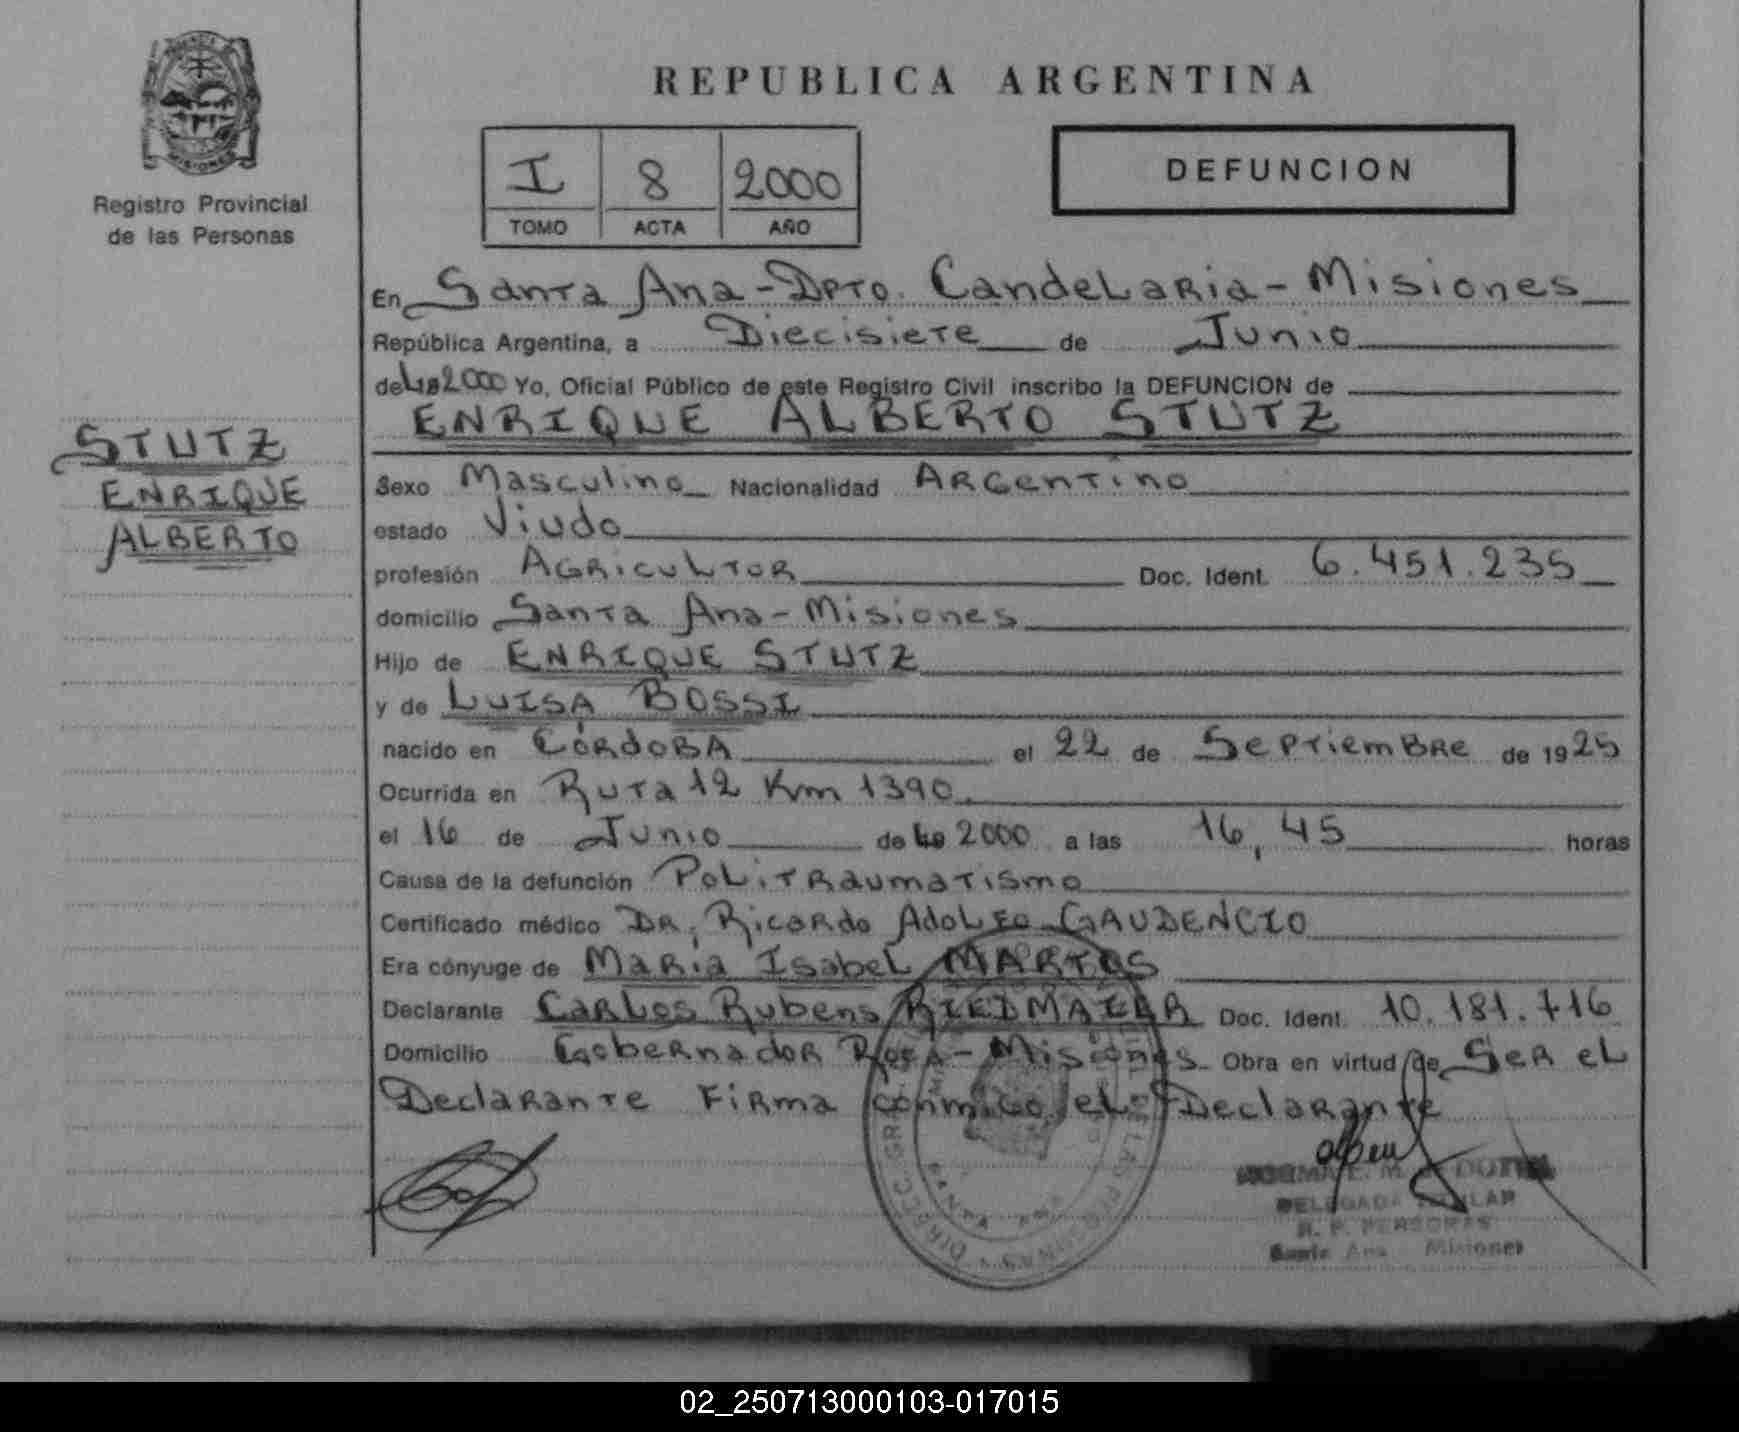 REPUBLICA ARGENTINA
MISIONES
Registro Provincial
de las Personas
I 8 2000
TOMO ACTA AÑO
DEFUNCION
En Santa Ana - Dpto. Candelaria - Misiones
República Argentina, a Diecisiete de Junio
del 2000 Yo, Oficial Público de este Registro Civil inscribo la DEFUNCION de
ENRIQUE ALBERTO STUTZ
STUTZ
ENRIQUE
ALBERTO
Sexo Masculino Nacionalidad Argentino
estado Viudo
profesión Agricultor Doc. Ident. 6.451.235
domicilio Santa Ana - Misiones
Hijo de ENRIQUE STUTZ
y de LUISA BOSSI
nacido en Córdoba el 22 de Septiembre de 1925
Ocurrida en Ruta 12 Km 1390.
el 16 de Junio de 2000 a las 16,45 horas
Causa de la defunción Politraumatismo
Certificado médico Dr. Ricardo Adolfo GAUDENCIO
Era cónyuge de Maria Isabel MARTOS
Declarante Carlos Rubens RIEDMAIER Doc. Ident. 10.181.716
Domicilio Gobernador Roca - Misiones Obra en virtud de Ser el
Declarante Firma conmigo el Declarante
DELEGADA TITULAR
R. P. PERSONAS
Santa Ana Misiones
02_250713000103-017015